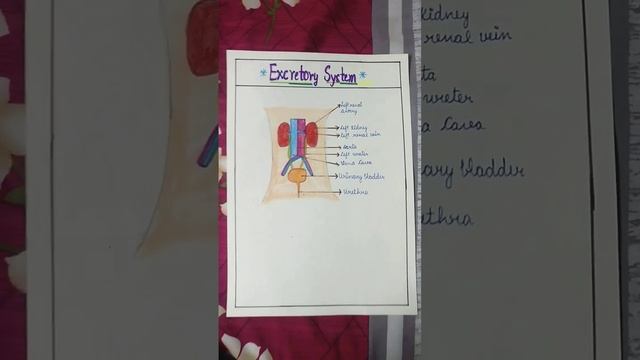 *Excretory System*
Left renal
artery
Left Kidney
Left renal vein
aorta
Left ureter
Vena Cava
Urinary bladder
Urethra
Kidney
renal vein
ta
ureter
a Cava
ary bladder
ethra